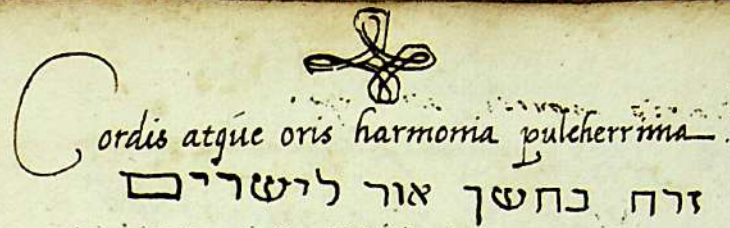 Cordis atque oris harmonia pulcherrima.
זרח בחשך אור לישרים